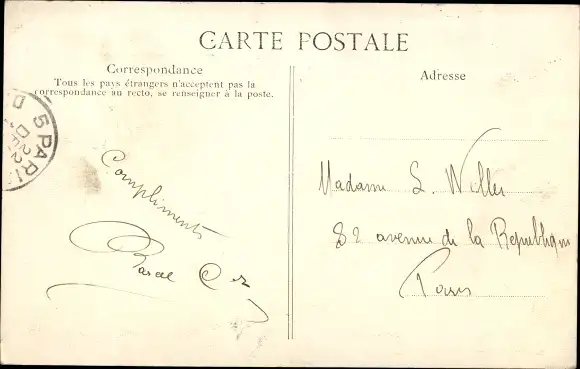 CARTE POSTALE
Correspondance
Tous les pays étrangers n'acceptent pas la
correspondance au recto, se renseigner à la poste.
Adresse
5 PARIS
D
22
DE
Compliments
Madame L. Willer
82 avenue de la République
Paris